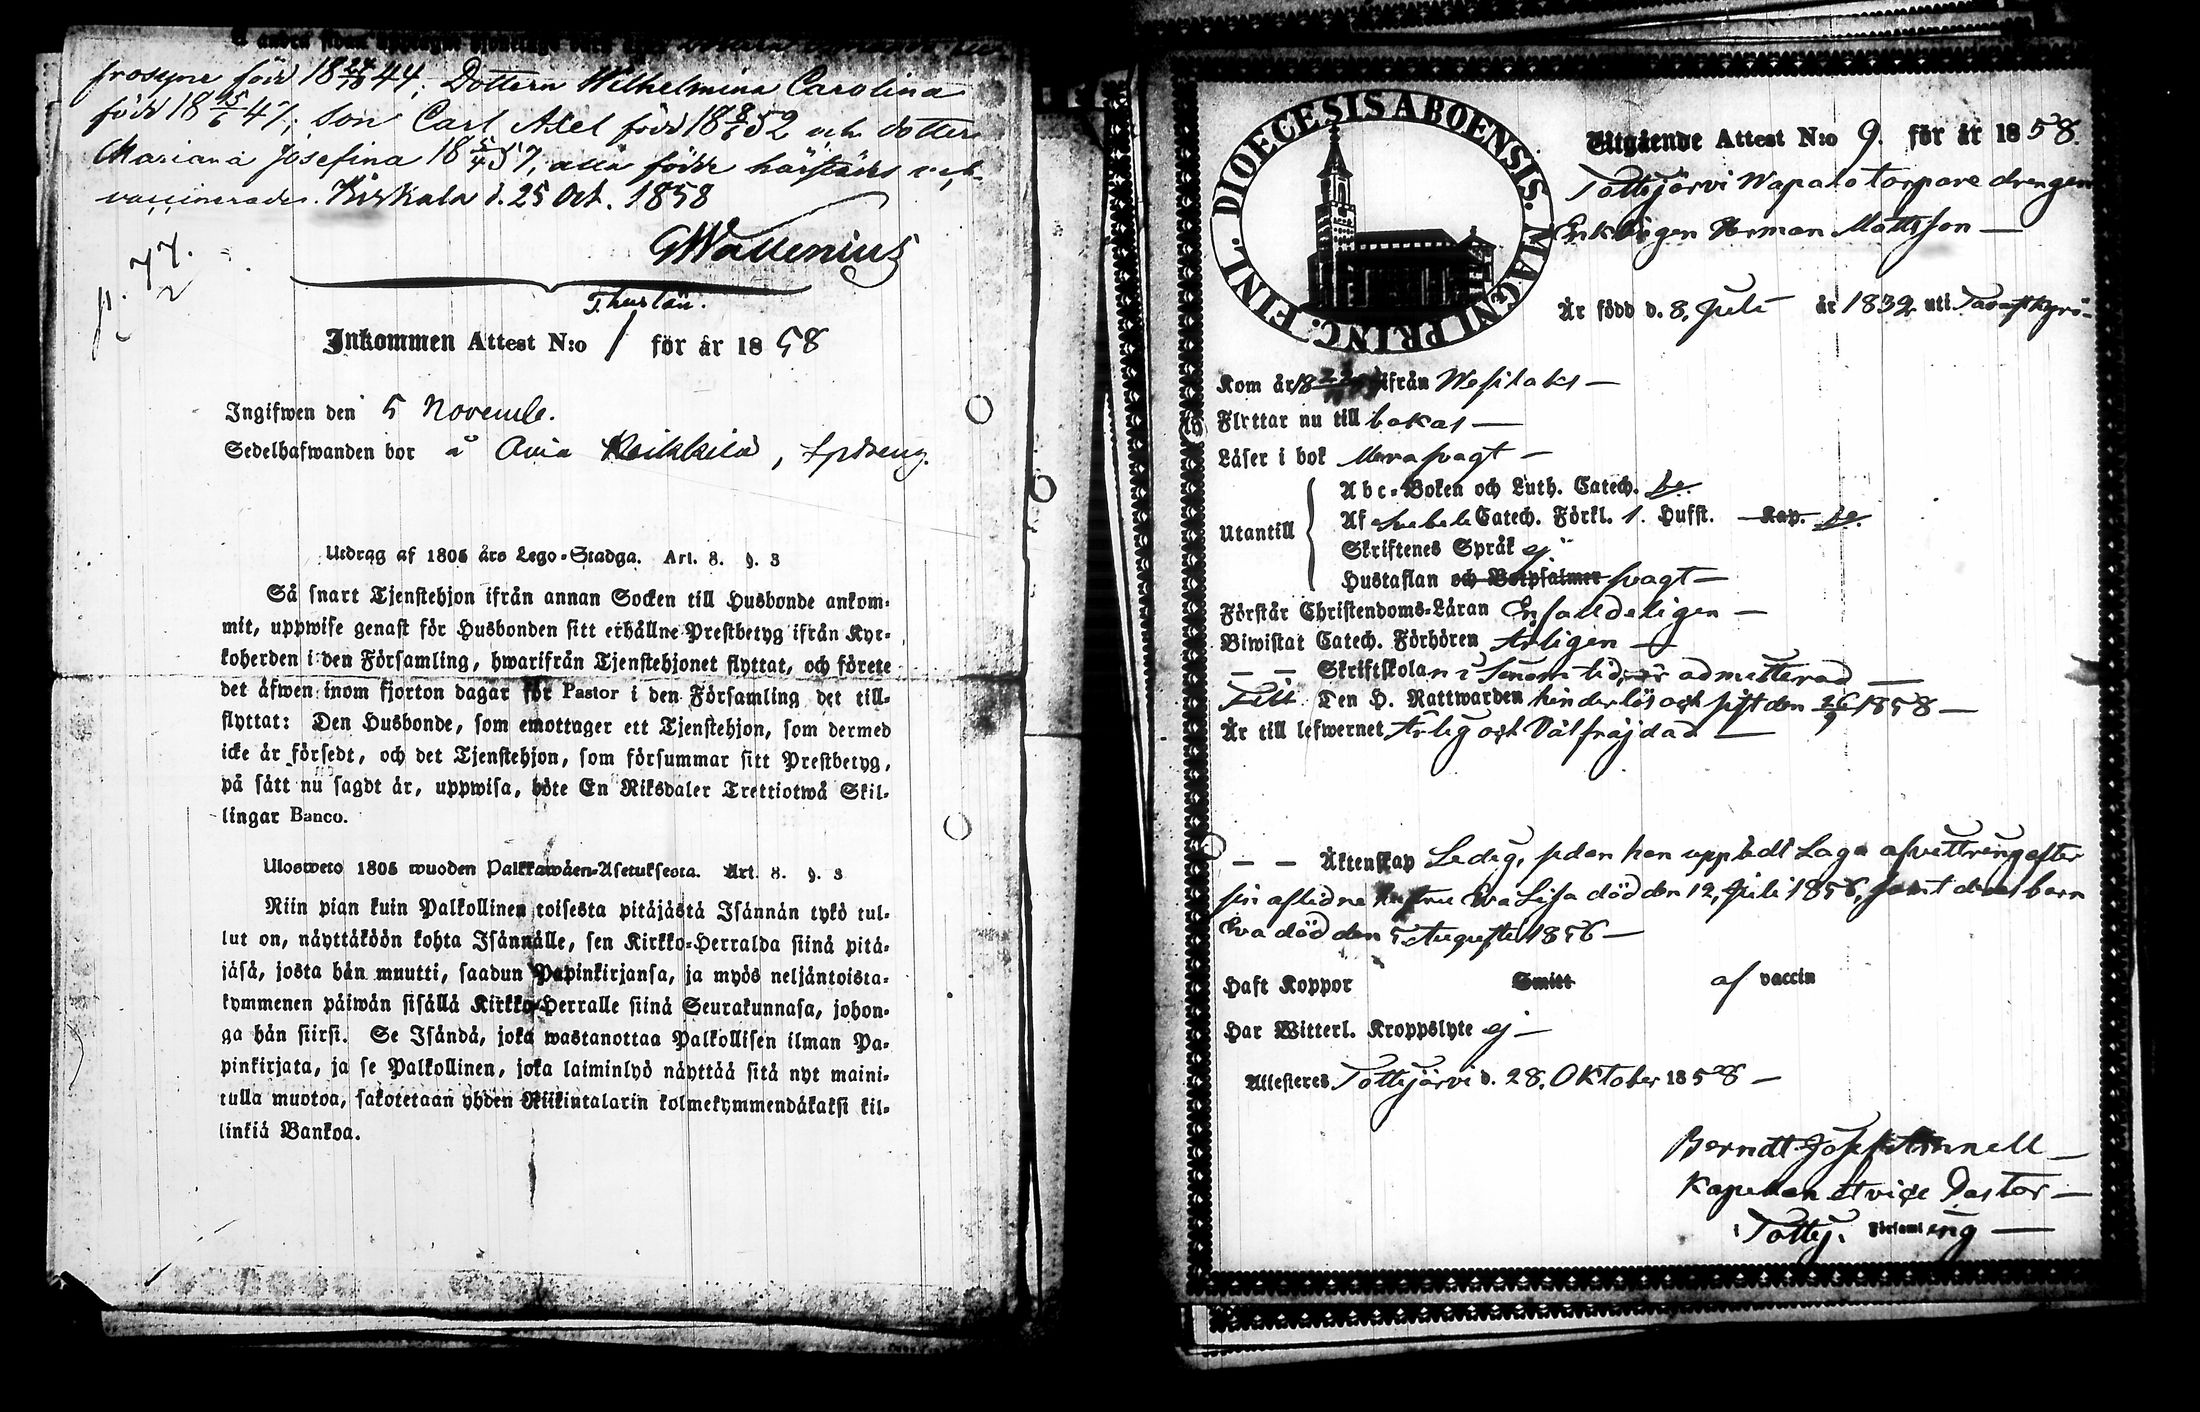 frosyne född 18 24/10 44; Dottern Wilhelmina Carolina
född 18 15/6 47; Son Carl Axel född 18 8/5 52 och dotter
Mariana Josefina 18 5/4 57, alla födde härstädes och
vaccinerade. Kiskala d. 25 Oct. 1858
GWallenius
p. 77.
Inkommen Attest N:o 1 för år 1858
Ingifwen den 5 Novemb.
Sedelhafwanden bor å
Utdrag af 1805 års Lego-Stadga. Art. 8. §. 3
Så snart Tjenstehjon ifrån annan Socken till Husbonde ankom-
mit, uppwise genast för Husbonden sitt erhållne Prestbetyg ifrån Kyr-
koherden i den Församling, hwarifrån Tjenstehjonet flyttat, och förete
det äfwen inom fjorton dagar för Pastor i den Församling det till-
flyttat: Den Husbonde, som emottager ett Tjenstehjon, som dermed
icke är försedt, och det Tjenstehjon, som försummar sitt Prestbetyg,
på sätt nu sagdt är, uppwisa, böte En Riksdaler Trettiotwå Skil-
lingar Banco.
Ulosweto 1805 wuoden Palkkawäen-Asetuksesta. Art. 8. §. 3
Niin pian kuin Palkollinen toisesta pitäjästä Isännän tykö tul-
lut on, näyttäköön kohta Isännälle, sen Kirkko-Herralda siinä pitä-
jäsä, josta hän muutti, saadun Papinkirjansa, ja myös neljäntoista-
kymmenen päiwän sisällä Kirkko-Herralle siinä Seurakunnasa, johon-
ga hän siirsi. Se Isändä, joka wastanottaa Palkollisen ilman Pa-
pinkirjata, ja se Palkollinen, joka laiminlyö näyttää sitä nyt maini-
tulla muotoa, sakotetaan yhden Riikintalarin kolmekymmendäkaksi kil-
linkiä Bankoa.
FINL. DIOECESIS ABOENSIS. MAGNI PRINC.
Utgående Attest N:o 9. för år 1858.
Tottijärvi Wapalo torpare drengen
Enklingen Herman Mattsson
Är född d. 8. Juli år 1832 uti Tavastkyrö
Kom år 18 ifrån Wesilaks
Flyttar nu till Lokas
Läser i bok Merasvagt
Utantill
Abc-Boken och Luth. Catech. be.
Af Svebeli Catech. Förkl. 1. Hufst. Kap. be.
Skriftenes Språk ej
Hustaflan och Botpsalmer svagt
Förstår Christendoms-Läran Enfaldeligen
Biwistat Catech. Förhören Årligen
— — Skriftskolan i sinom tid, är admitterad
Till Den H. Nattwarden hinderlös och sist den 26/9 1858
Är till lefwernet Ärlig och Välfräjdad
— — Äktenskap Ledig, sedan han uppfödt Laga afvittring efter
sin aflidne hustru Eva Lisa död den 12 Juli 1856, samt deras barn
Eva död den 5 Augusti 1856
Haft Koppor Smitt af vaccin
Har Witterl. Kroppslyte ej
Attesteres Tottijärvi d. 28. Oktober 1858
Berndt Josef
Kapellan et vice Pastor
i Tottij. Församling